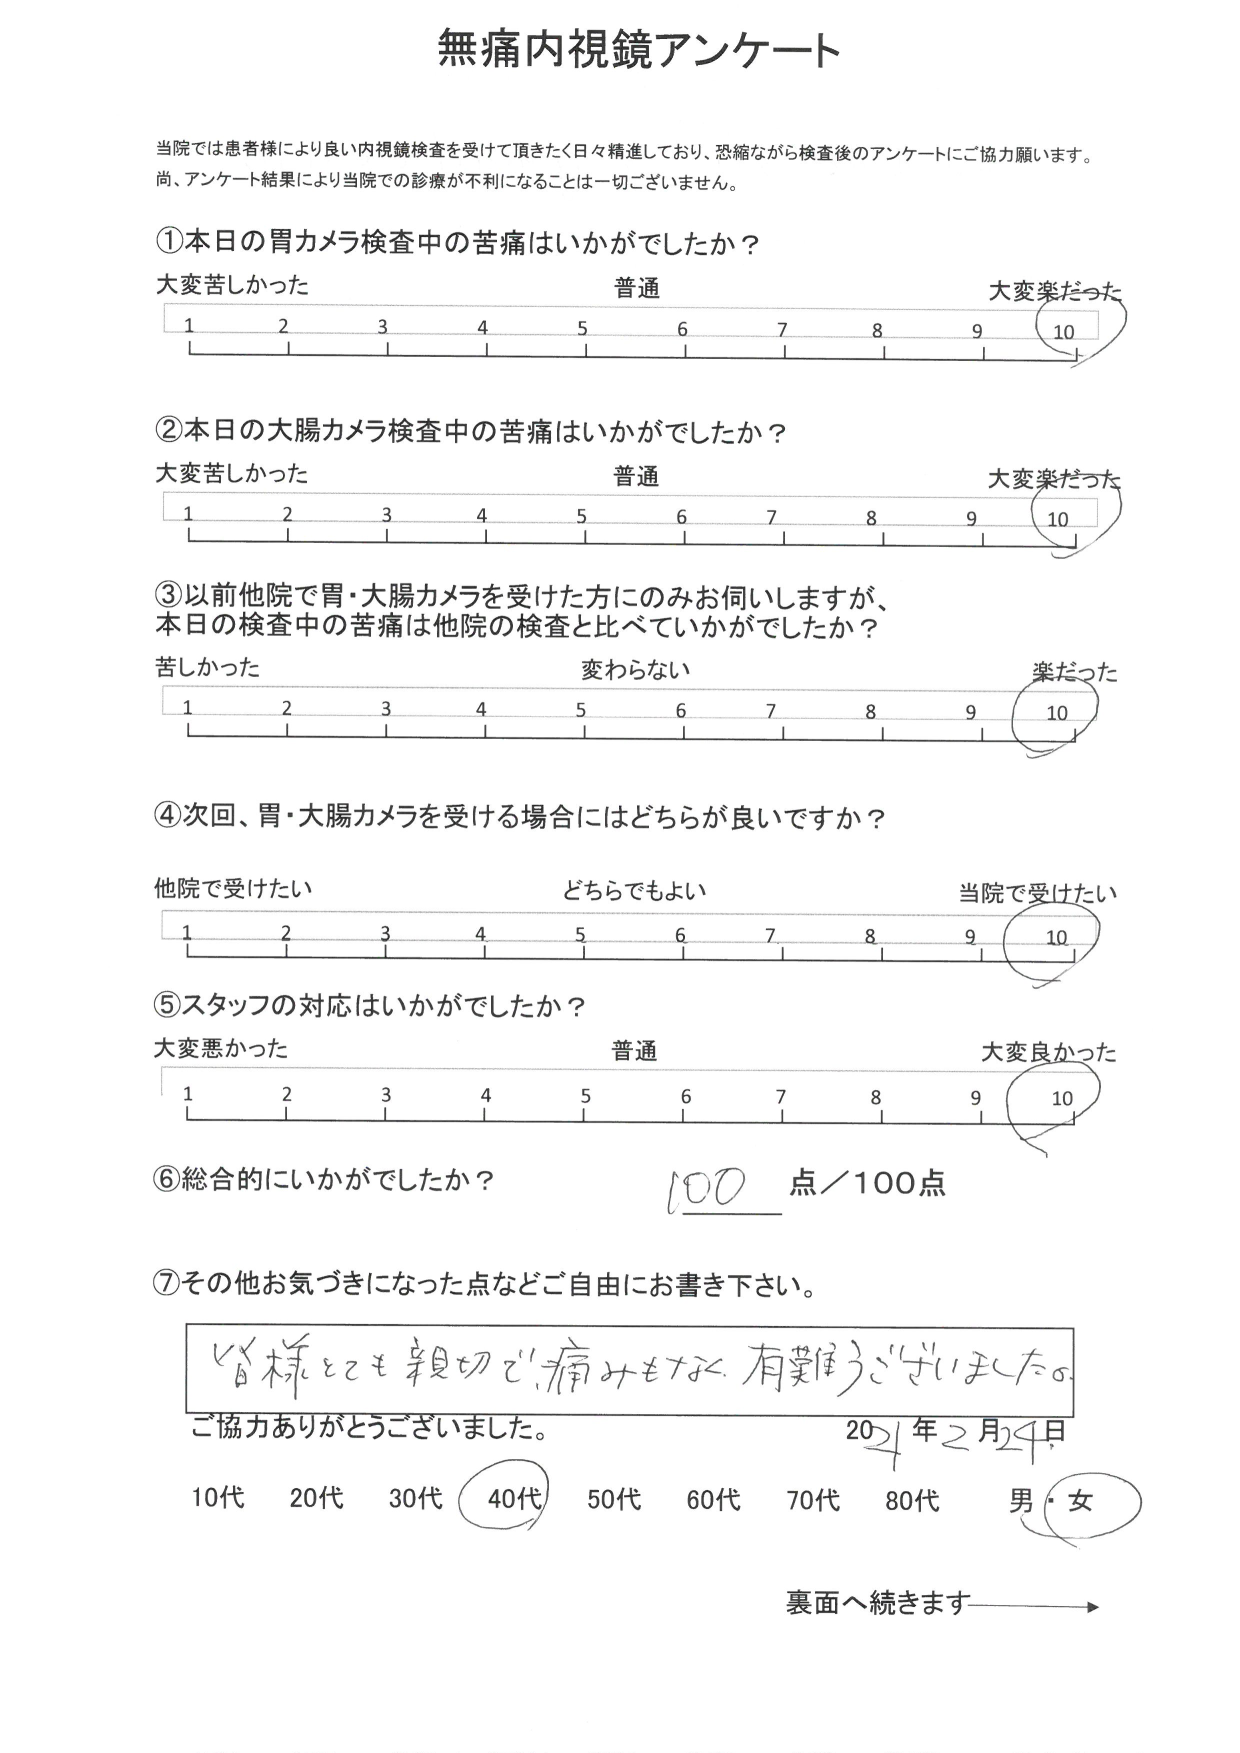 無痛内視鏡アンケート
当院では患者様により良い内視鏡検査を受けて頂きたく日々精進しており、恐縮ながら検査後のアンケートにご協力願います。
尚、アンケート結果により当院での診療が不利になることは一切ございません。
①本日の胃カメラ検査中の苦痛はいかがでしたか？
大変苦しかった 普通 大変楽だった
1 2 3 4 5 6 7 8 9 10
②本日の大腸カメラ検査中の苦痛はいかがでしたか？
大変苦しかった 普通 大変楽だった
1 2 3 4 5 6 7 8 9 10
③以前他院で胃・大腸カメラを受けた方にのみお伺いしますが、
本日の検査中の苦痛は他院の検査と比べていかがでしたか？
苦しかった 変わらない 楽だった
1 2 3 4 5 6 7 8 9 10
④次回、胃・大腸カメラを受ける場合にはどちらが良いですか？
他院で受けたい どちらでもよい 当院で受けたい
1 2 3 4 5 6 7 8 9 10
⑤スタッフの対応はいかがでしたか？
大変悪かった 普通 大変良かった
1 2 3 4 5 6 7 8 9 10
⑥総合的にいかがでしたか？ 100 点／100点
⑦その他お気づきになった点などご自由にお書き下さい。
皆様とても親切で、痛みもなく、有難うございました。
ご協力ありがとうございました。 2021年2月24日
10代 20代 30代 40代 50代 60代 70代 80代 男・女
裏面へ続きます